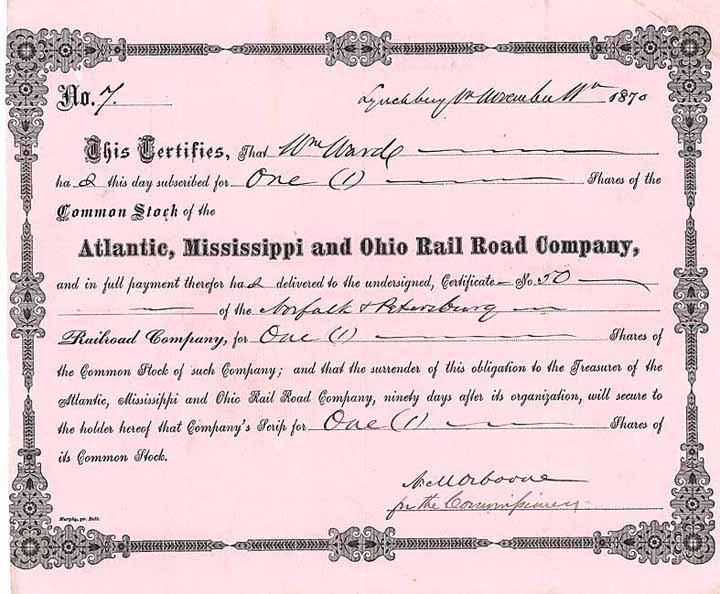 No. 7. Lynchburg Va November 11th 1870
This Certifies, That Wm Ward
has this day subscribed for One (1) Shares of the
Common Stock of the
Atlantic, Mississippi and Ohio Rail Road Company,
and in full payment therefor has delivered to the undersigned, Certificate No. 50
of the Norfolk & Petersburg
Railroad Company, for One (1) Shares of
the Common Stock of such Company; and that the surrender of this obligation to the Treasurer of the
Atlantic, Mississippi and Ohio Rail Road Company, ninety days after its organization, will secure to
the holder hereof that Company's Scrip for One (1) Shares of
its Common Stock.
for the Commissioners
Murphy, pr. Balt.